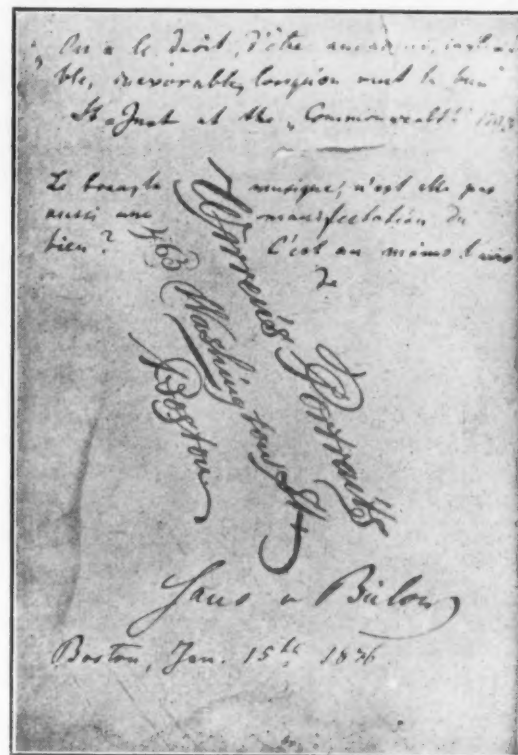 On a le droit, d'être
ble, inexorable, lorsqu'on veut le bien"
St Just at the „Commonwealth"
musique, n'est elle pas
aussi une manifestation du
bien? C'est au moins l'avis
de
Warren's Portraits
465 Washington St
Boston
Hans v Bülow
Boston, Jan. 15th 1876